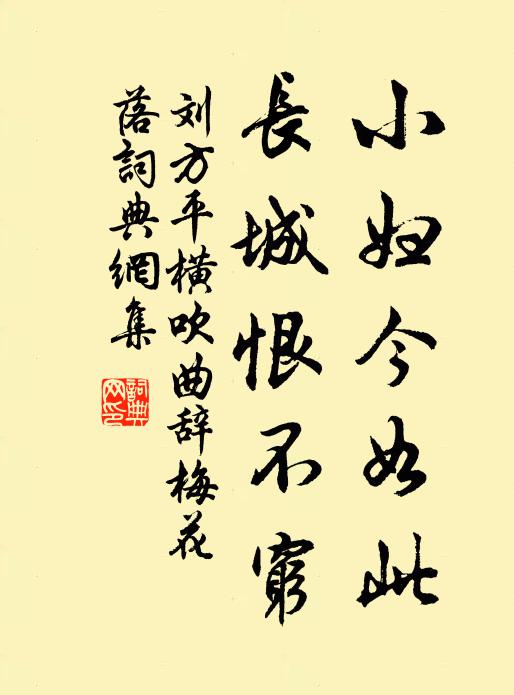 小妇今如此
長城恨不窮
刘方平横吹曲辞梅花
落詞典網集
詞典网印